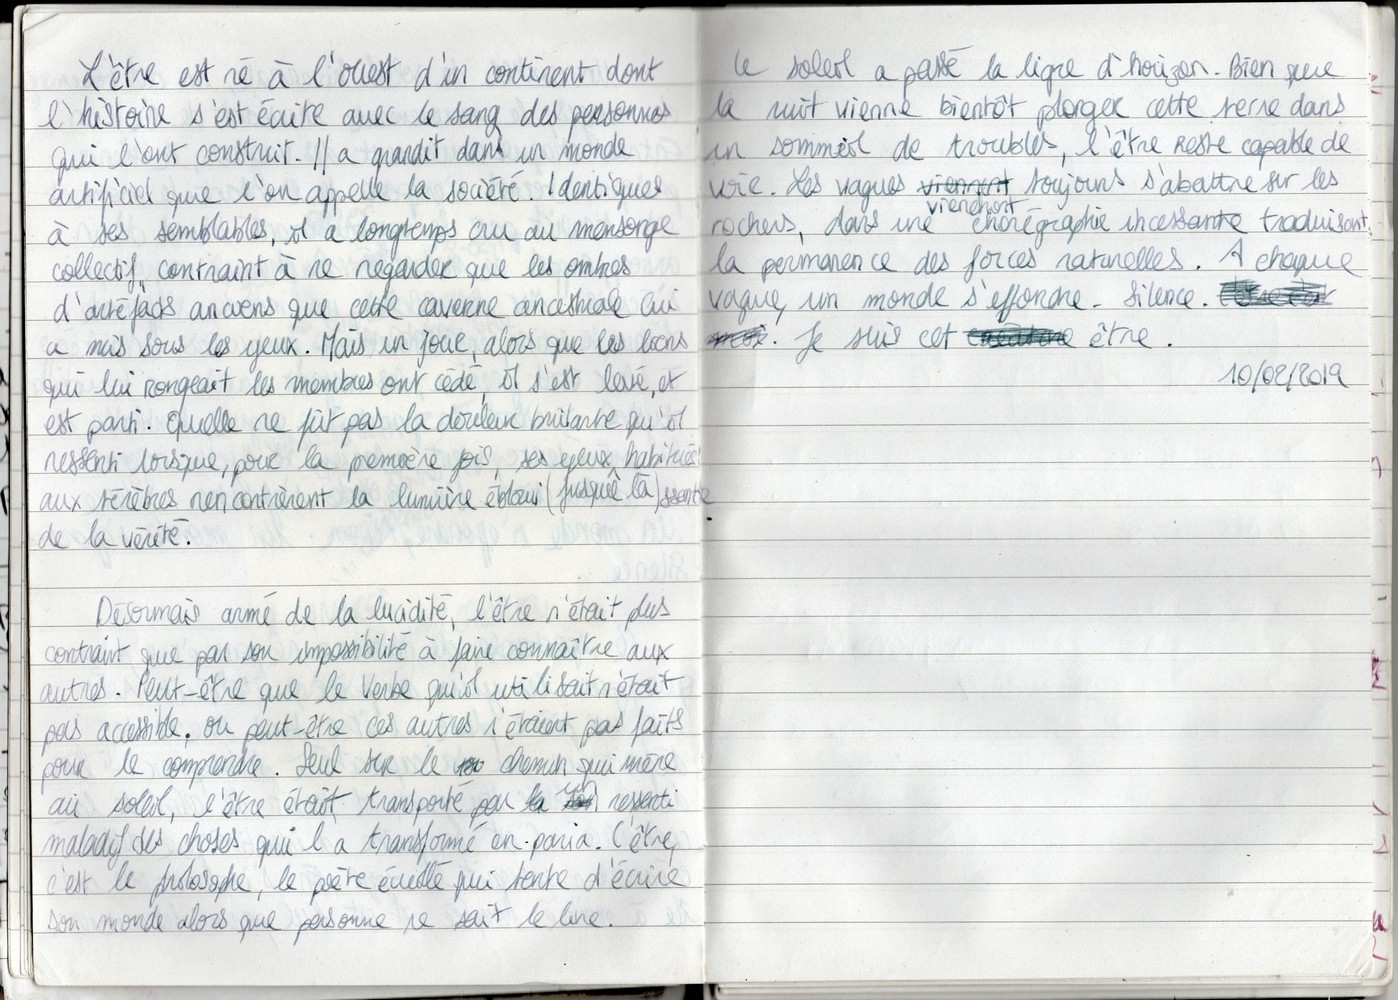 L'être est né à l'ouest d'un continent dont
l'histoire s'est écrite avec le sang des personnes
qui l'ont construit. Il a grandit dans un monde
artificiel que l'on appelle la société. Identiques
à ses semblables, il a longtemps cru au mensonge
collectif, contraint à ne regarder que les ombres
d'artéfacts anciens que cette caverne ancestrale lui
a mis sous les yeux. Mais un jour, alors que les liens
qui lui rongeait les membres ont cédé, il s'est levé, et
est parti. Quelle ne fût pas la douleur brûlante qu'il
ressenti lorsque, pour la première fois, ses yeux habitués
aux ténèbres rencontrèrent la lumière éblouissante (jusque là)
de la vérité.
Désormais armé de la lucidité, l'être n'était plus
contraint que par son impossibilité à faire connaître aux
autres. Peut-être que le Verbe qu'il utilisait n'était
pas accessible, ou peut-être ces autres n'étaient pas faits
pour le comprendre. Seul sur le chemin qui mène
au soleil, l'être était transporté par la ressenti
maladif des choses qui l'a transformé en paria. L'être,
c'est le philosophe, le poète éveillé qui tente d'écrire
son monde alors que personne ne sait le lire.
Le soleil a passé la ligne d'horizon. Bien que
la nuit vienne bientôt plonger cette terre dans
un sommeil de troubles, l'être reste capable de
voir. Les vagues viennent toujours s'abattre sur les
viendront
rochers, dans une chorégraphie incessante traduisant
la permanence des forces naturelles. A chaque
vague, un monde s'effondre. Silence.
. Je suis cet être.
10/02/2019